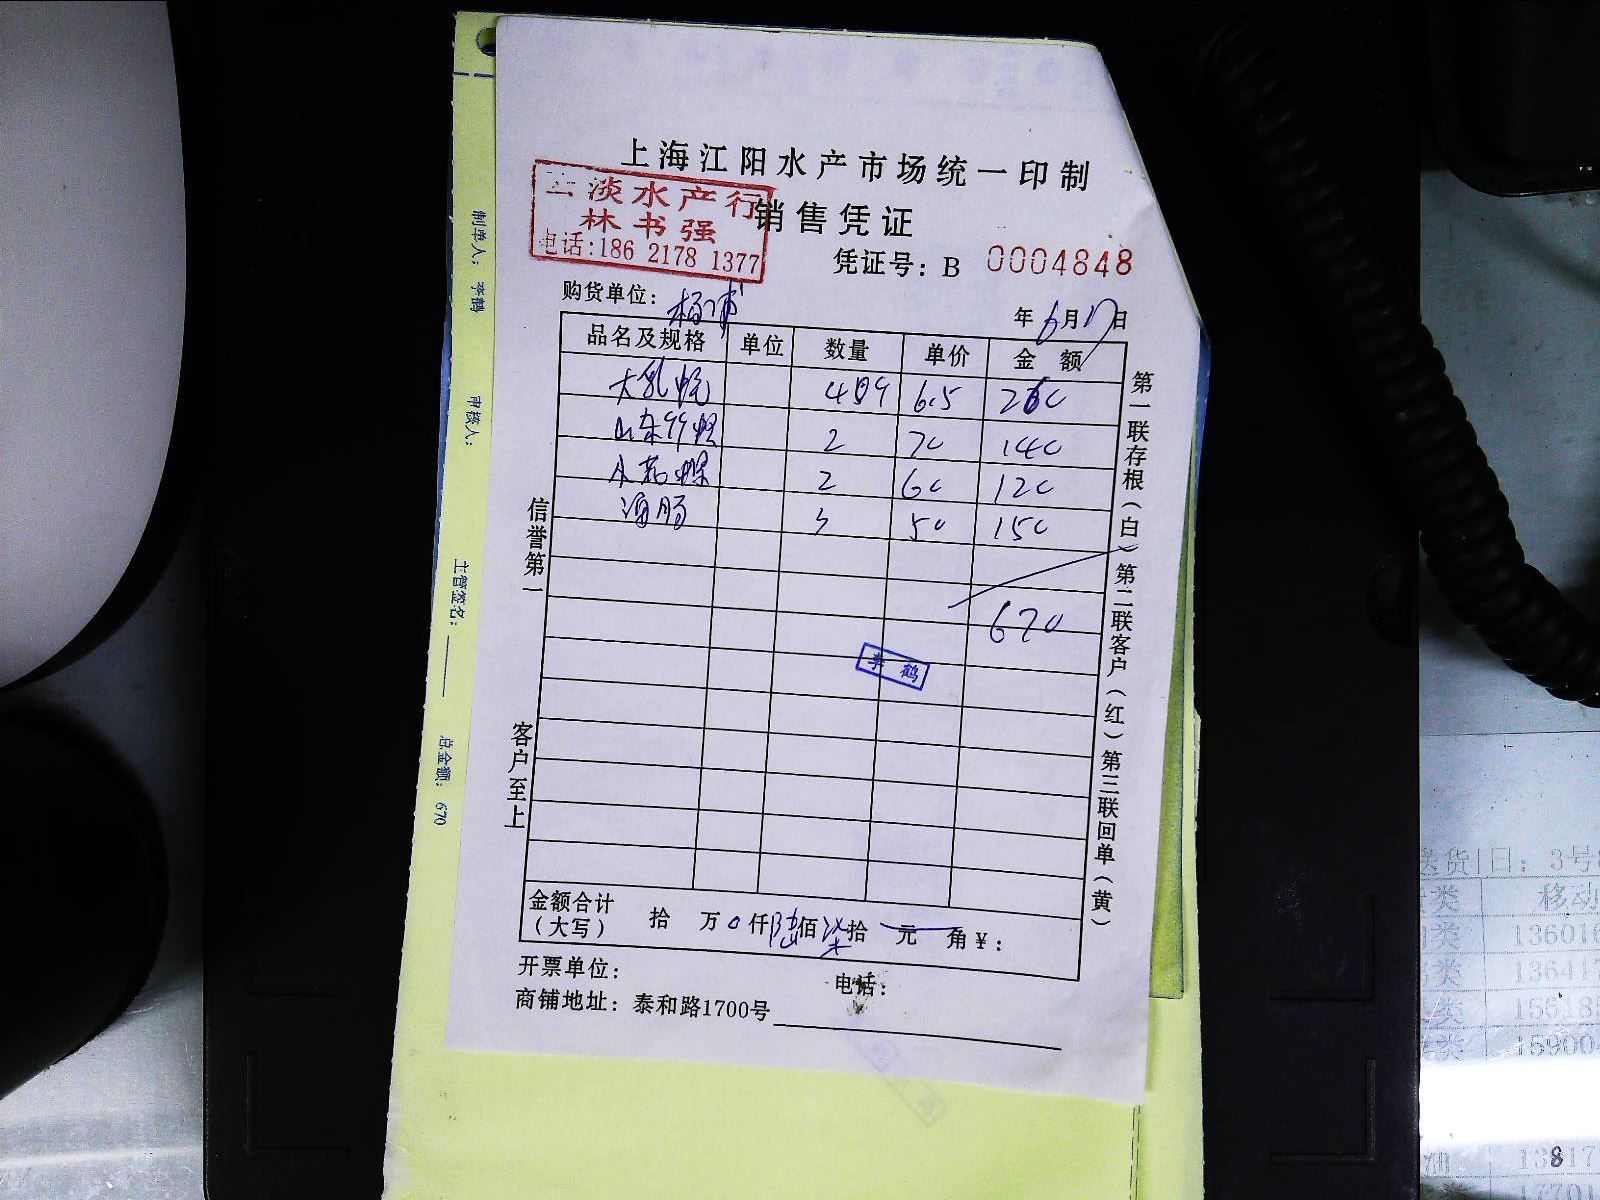 上海江阳水产市场统一印制
销售凭证
三淡水产行
林书强
电话:186 2178 1377
凭证号: B 0004848
购货单位: 杨浦
年6月17日
品名及规格 单位 数量 单价 金额
大乳蚬 6.5 260
山东 2 70 140
小花螺 2 60 120
海肠 3 50 150
670
李鹤
信誉第一
客户至上
第一联存根(白)第二联客户(红)第三联回单(黄)
金额合计
(大写) 拾 万0仟陆佰柒拾 元 角¥:
开票单位: 电话:
商铺地址: 泰和路1700号
制单人: 李鹤 审核人: 主管签名: 总金额: 670
送货日: 3号
类 移动
类 13601
类 13641
类 15618
类 15900
13817
17701